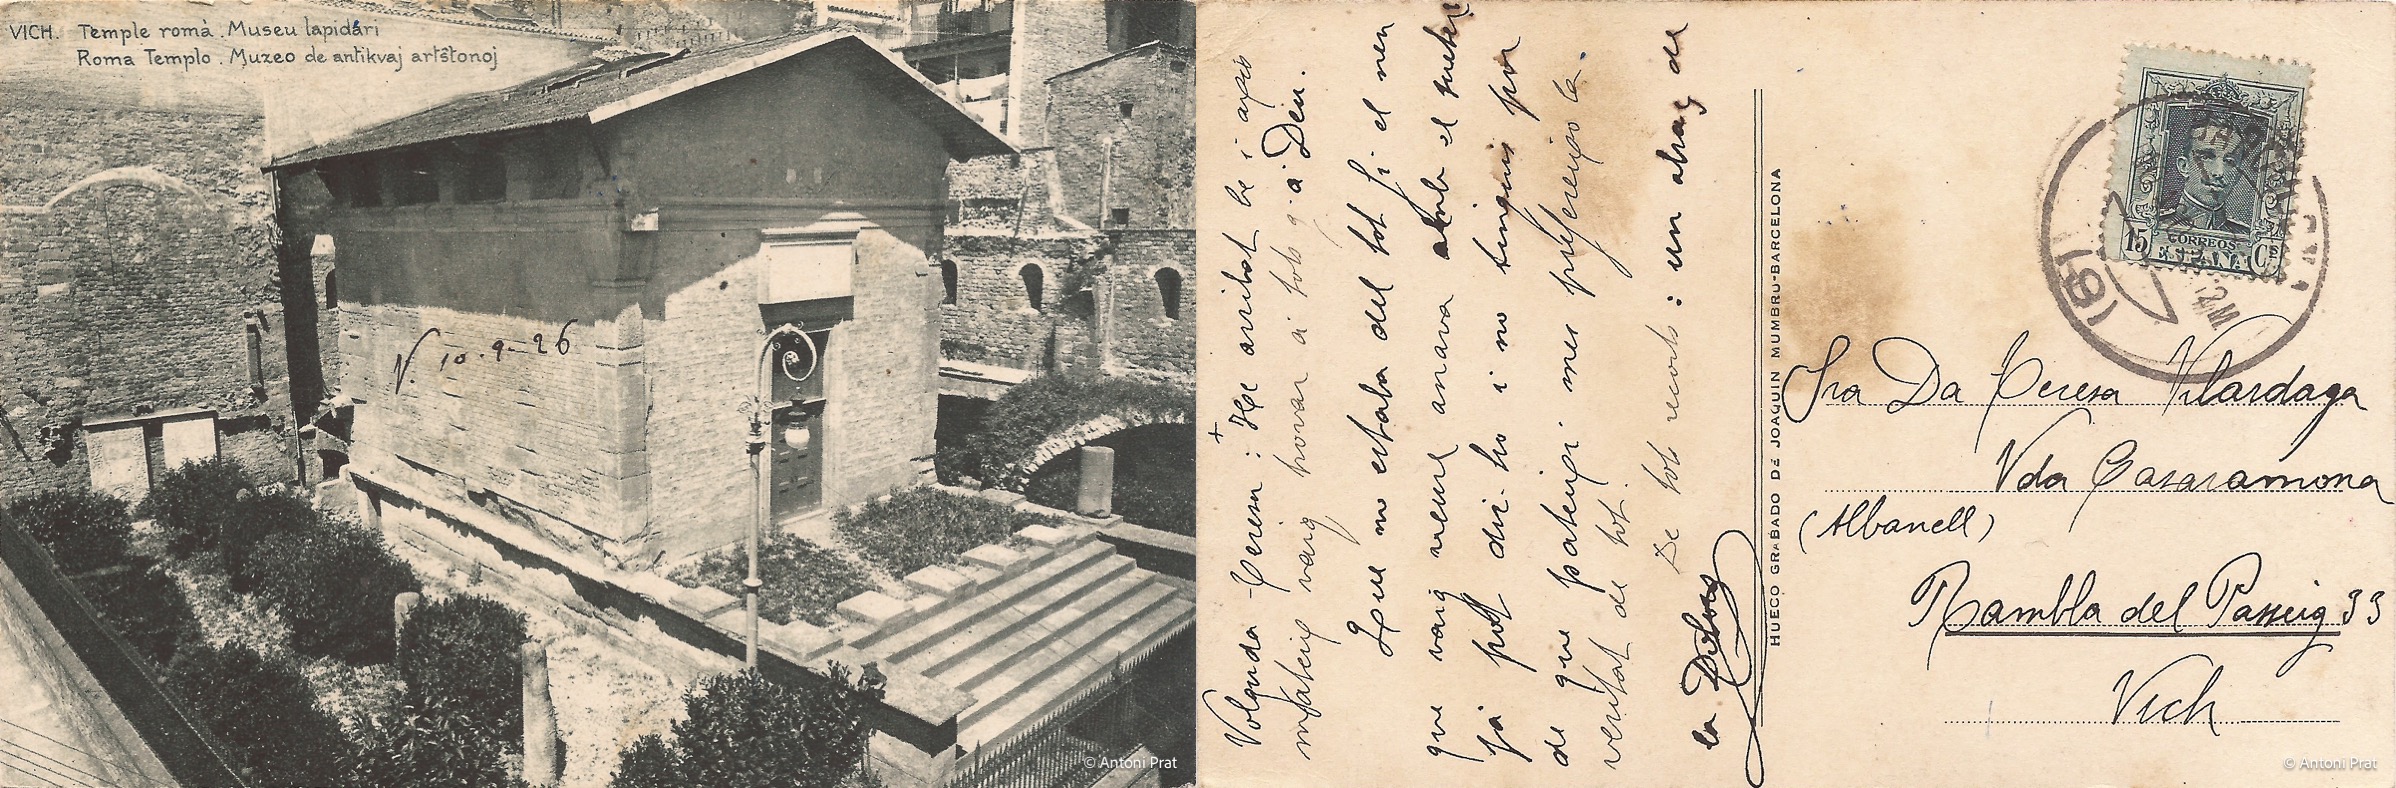 VICH. Temple romà. Museu lapidári
Roma Templo. Muzeo de antikvaj artŝtonoj
V. 10-9-26
© Antoni Prat
+
Volguda Teresa: He arribat be i aqui
mateix vaig trovar a tots g. a Deu.
Que no estaba del tot fi el nen
que vaig veure anava amb el
ja pot dir-ho i no tinguis por
de que pateixi mes
veritat de tot.
De tots recorts: un abraç de
la Dolors
HUECO GRABADO DE JOAQUIN MUMBRU-BARCELONA
15 CORREOS Cs
ESPAÑA
Sra Da Teresa Vilardaga
Vda Casaramona
(Albanell)
Rambla del Passeig 33
Vich
© Antoni Prat